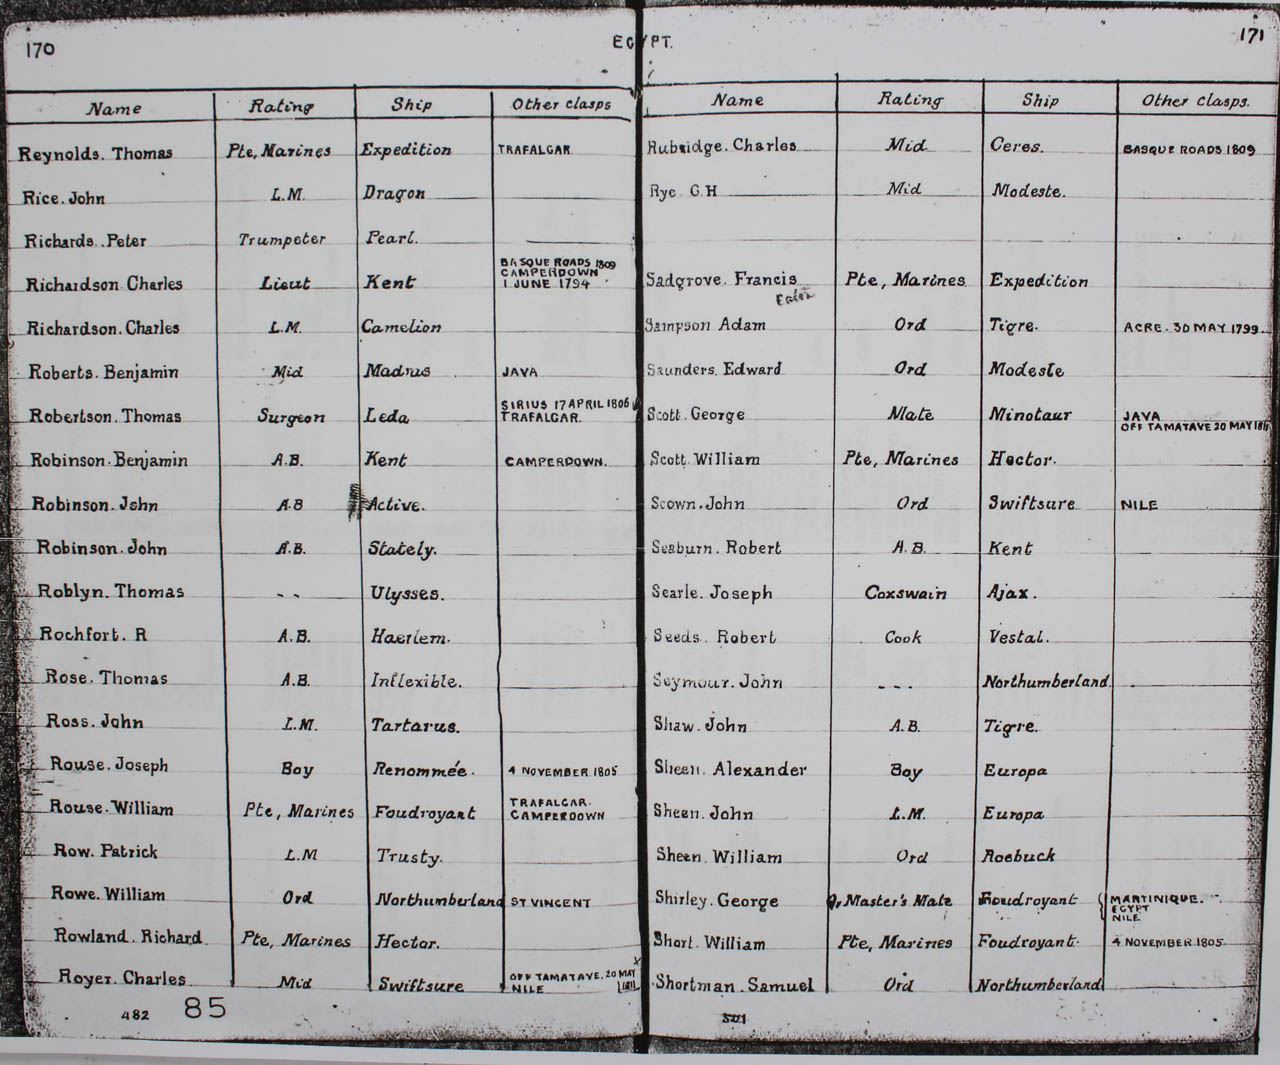 170
EGYPT.
171
Name Rating Ship Other clasps
Reynolds. Thomas Pte, Marines Expedition TRAFALGAR
Rice. John L.M. Dragon
Richards. Peter Trumpeter Pearl.
Richardson Charles Lieut Kent BASQUE ROADS 1809
CAMPERDOWN
1 JUNE 1794
Richardson. Charles L.M. Camelion
Roberts. Benjamin Mid Madras JAVA
Robertson. Thomas Surgeon Leda SIRIUS 17 APRIL 1806
TRAFALGAR.
Robinson. Benjamin A.B. Kent CAMPERDOWN.
Robinson. John A.B Active.
Robinson. John A.B. Stately.
Roblyn. Thomas - - Ulysses.
Rochfort. R A.B. Haerlem.
Rose. Thomas A.B. Inflexible.
Ross. John L.M. Tartarus.
Rouse. Joseph Boy Renommée. 4 NOVEMBER 1805
Rouse. William Pte, Marines Foudroyant TRAFALGAR.
CAMPERDOWN
Row. Patrick L.M Trusty.
Rowe. William Ord Northumberland ST VINCENT
Rowland. Richard Pte, Marines Hector.
Royer. Charles Mid Swiftsure OFF TAMATAVE. 20 MAY
1811
NILE
482 85
Name Rating Ship Other clasps.
Rubridge. Charles Mid Ceres. BASQUE ROADS 1809
Rye G.H Mid Modeste.
Sadgrove. Francis Pte, Marines Expedition
Sampson Adam Ord Tigre. ACRE. 30 MAY 1799.
Saunders. Edward Ord Modeste
Scott. George Mate Minotaur JAVA
OFF TAMATAVE 20 MAY 1811
Scott William Pte, Marines Hector.
Scown. John Ord Swiftsure NILE
Seaburn. Robert A.B. Kent
Searle. Joseph Coxswain Ajax.
Seeds. Robert Cook Vestal.
Seymour. John - - - Northumberland.
Shaw. John A.B. Tigre.
Sheen. Alexander Boy Europa
Sheen. John L.M. Europa
Sheen. William Ord Roebuck
Shirley. George Master's Mate Foudroyant MARTINIQUE.
EGYPT
NILE
Short. William Pte, Marines Foudroyant. 4 NOVEMBER 1805
Shortman. Samuel Ord Northumberland